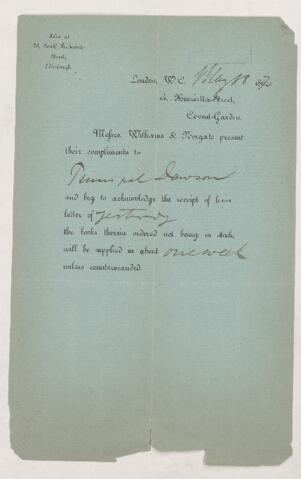 Also at
20, South Frederick
Street,
Edinburgh.
London, W.C. May 18 1870
14, Henrietta-Street,
Covent-Garden.
Messrs. Williams & Norgate present
their compliments to
Principal Dawson
and beg to acknowledge the receipt of
letter of yesterday
the books therein ordered not being in stock
will be supplied in about one week
unless countermanded.